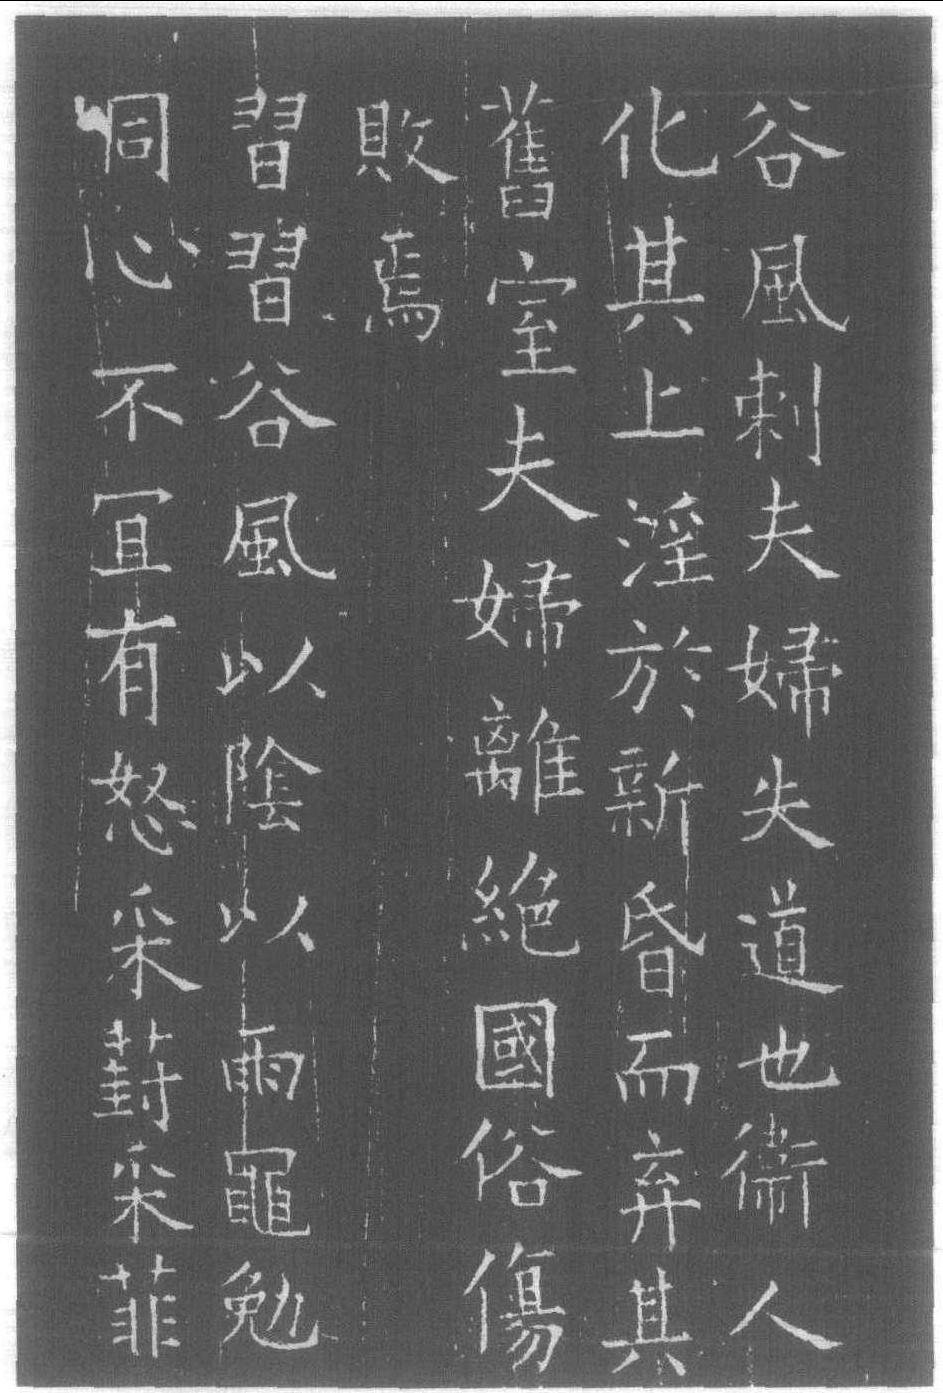 谷風刺夫婦失道也衛人
化其上淫於新昏而弃其
舊室夫婦離絶國俗傷
敗焉
習習谷風以陰以雨黽勉
同心不冝有怒采葑采菲